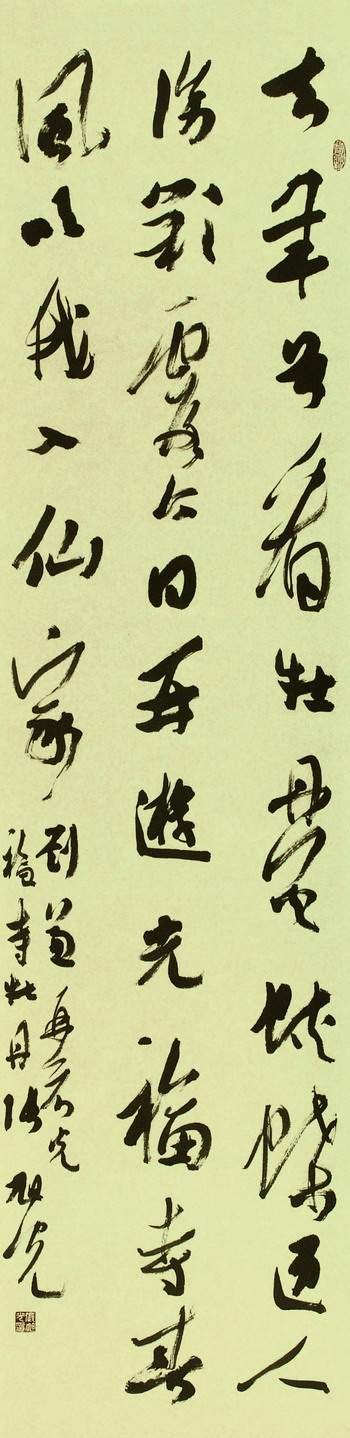 去年曾看牡丹花蛺蝶迎人
傍彩霞今日再遊光福寺春
風吹我入仙家
劉兼再看光
福寺牡丹張旭光